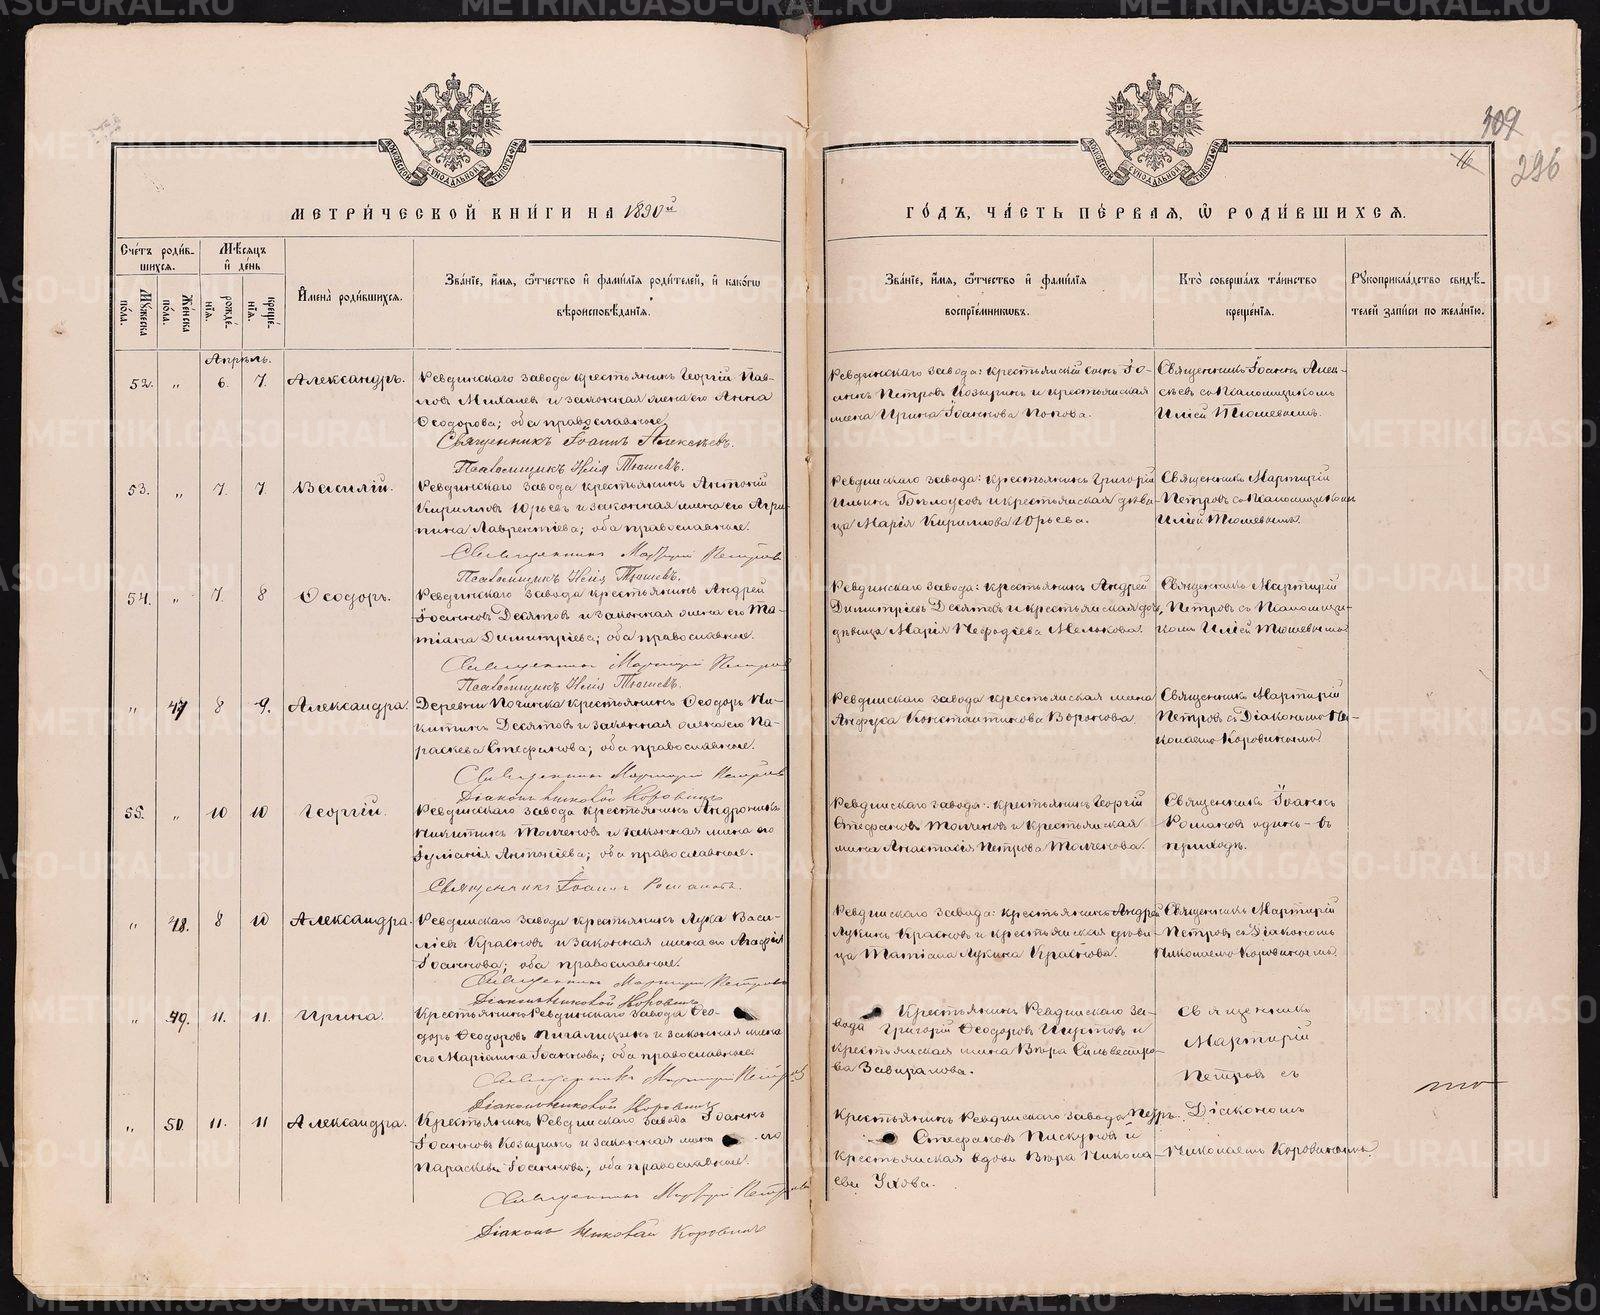 МЕТРИ́ЧЕСКОЙ КНИ́ГИ НА 1890й
ГО́ДЪ, ЧА́СТЬ ПЕ́РВАЯ, Ѡ РОДИ́ВШИХСЯ.
309
16
296
МОСКОВСКОЙ СѴНОДАЛЬНОЙ ТИПОГРАФІИ
МОСКОВСКОЙ СѴНОДАЛЬНОЙ ТИПОГРАФІИ
Сче́тъ роди́в-
шихся.
Мꙋжеска
по́ла.
Же́нска
по́ла.
Мѣ́сяцъ
и҆ де́нь
рожде́-
нїя.
креще́-
нїя.
И҆мена̀ роди́вшихся.
Зва́нїе, и҆́мя, ѻ҆́тчество и҆ фами́лїя роди́телей, и҆ како́гѡ
вѣроисповѣ́данїя.
Зва́нїе, и҆́мя, ѻ҆́тчество и҆ фами́лїя
воспрїе́мникѡвъ.
Кто̀ соверша́лъ та́инство
креще́нїя.
Рꙋкоприкла́дство свидѣ́-
телей за́писи по жела́нїю.
Апрѣль.
52. " 6. 7. Александръ.
Ревдинскаго завода крестьянинъ Георгій Пав-
ловъ Михалевъ и законная жена его Анна
Ѳеодорова; оба православные.
Священникъ Іоаннъ Алексѣевъ.
Псаломщикъ Илія Тюшевъ.
Ревдинскаго завода: крестьянскій сынъ Іо-
аннъ Петровъ Козыринъ и крестьянская
жена Ирина Іоаннова Попова.
Священникъ Іоаннъ Алек-
сѣевъ съ Псаломщикомъ
Иліей Тюшевымъ.
53. " 7. 7. Василій.
Ревдинскаго завода крестьянинъ Антоній
Кирилловъ Юрьевъ и законная жена его Агри-
пина Лаврентіева; оба православные.
Священникъ Мартирій Петровъ
Псаломщикъ Илія Тюшевъ.
Ревдинскаго завода: крестьянинъ Григорій
Ильинъ Бѣлоусовъ и крестьянская дѣви-
ца Марія Кириллова Юрьева.
Священникъ Мартирій
Петровъ съ Псаломщикомъ
Иліей Тюшевымъ.
54. " 7. 8 Ѳеодоръ.
Ревдинскаго завода крестьянинъ Андрей
Іоанновъ Десятовъ и законная жена его Та-
тіана Димитріева; оба православные.
Священникъ Мартирій Петровъ
Псаломщикъ Илія Тюшевъ.
Ревдинскаго завода: крестьянинъ Андрей
Димитріевъ Десятовъ и крестьянская
дѣвица Марія Мелькова.
Священникъ Мартирій
Петровъ съ Псаломщи-
комъ Иліей Тюшевымъ
" 47 8 9. Александра.
Деревни крестьянинъ Ѳеодоръ Ни-
китинъ Десятовъ и законная жена его Па-
раскева Стефанова; оба православные.
Священникъ Мартирій Петровъ
Діаконъ Николай Коровинъ
Ревдинскаго завода крестьянская жена
Анфуса Константинова Воронова.
Священникъ Мартирій
Петровъ съ Діакономъ Ни-
колаемъ Коровинымъ
55. " 10 10 Георгій.
Ревдинскаго завода крестьянинъ Андроникъ
Никитинъ Толченовъ и законная жена его
Іуліанія Антоніева; оба православные.
Священникъ Іоаннъ Романовъ.
Ревдинскаго завода: крестьянинъ Георгій
Стефановъ Толченовъ и крестьянская
жена Анастасія Петрова Толченова.
Священникъ Іоаннъ
Романовъ одинъ - въ
приходѣ.
" 48. 8 10 Александра.
Ревдинскаго завода крестьянинъ Лука Васи-
ліевъ Красновъ и законная жена его Агафія
Іоаннова; оба православные.
Священникъ Мартирій Петровъ
Діаконъ Николай Коровинъ
Ревдинскаго завода: крестьянинъ Андрей
Лукинъ Красновъ и крестьянская дѣви-
ца Татіана Лукина Краснова.
Священникъ Мартирій
Петровъ съ Діакономъ
Николаемъ Коровинымъ.
" 49. 11. 11. Ирина.
Крестьянинъ Ревдинскаго завода Ѳео-
доръ Ѳеодоровъ Пигалицинъ и законная жена
его Маріанна Іоаннова; оба православные.
Священникъ Мартирій Петровъ
Діаконъ Николай Коровинъ
Крестьянинъ Ревдинскаго за-
вода Григорій Ѳеодоровъ и
крестьянская жена Вѣра Сильвестро-
ва
Священникъ
Мартирій
Петровъ съ
" 50. 11. 11 Александра.
Крестьянинъ Ревдинскаго завода Іоаннъ
Іоанновъ Козыринъ и законная жена его
Параскева Іоаннова; оба православные.
Священникъ Мартирій Петровъ
Діаконъ Николай Коровинъ
Крестьянинъ Ревдинскаго завода Петръ
Стефановъ Пискуновъ и
крестьянская вдова Вѣра Никола-
ева Ухова.
Діакономъ
Николаемъ Коровинымъ.